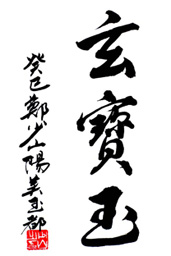 玄寶玉
癸巳鄭少陽美玉都